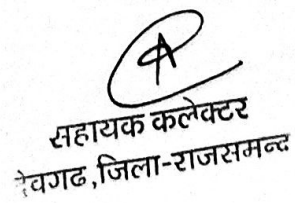 सहायक कलेक्टर
देवगढ, जिला-राजसमन्द